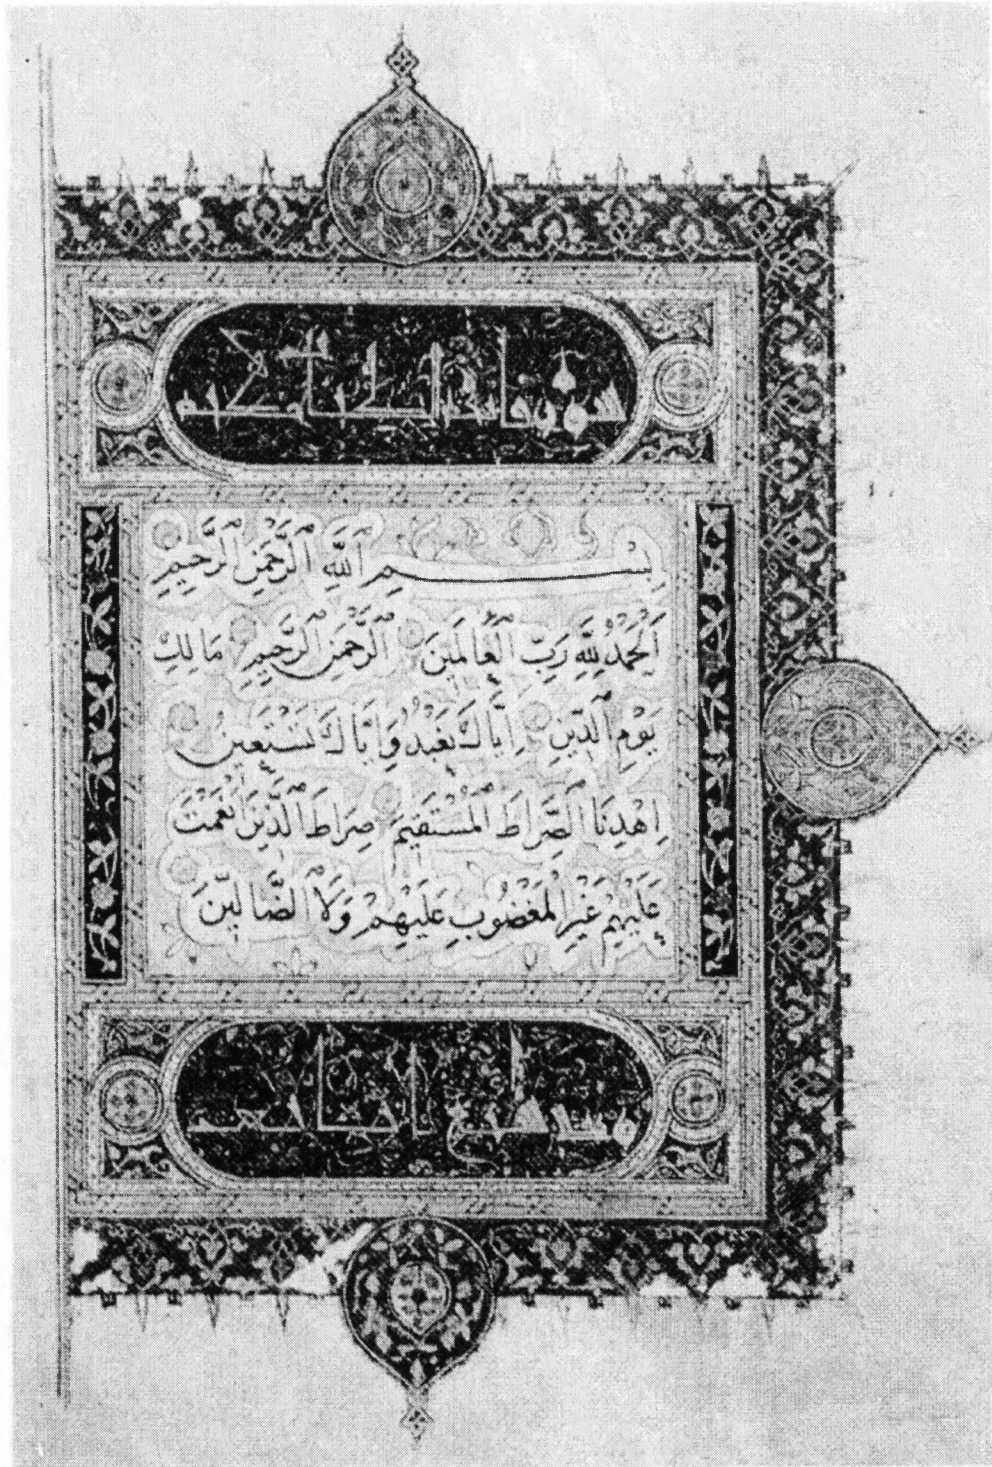 بِسْمِ ٱللَّهِ ٱلرَّحْمَٰنِ ٱلرَّحِيمِ
ٱلْحَمْدُ لِلَّهِ رَبِّ ٱلْعَالَمِينَ ٱلرَّحْمَٰنِ ٱلرَّحِيمِ مَالِكِ
يَوْمِ ٱلدِّينِ إِيَّاكَ نَعْبُدُ وَإِيَّاكَ نَسْتَعِينُ
اِهْدِنَا ٱلصِّرَاطَ ٱلْمُسْتَقِيمَ صِرَاطَ ٱلَّذِينَ أَنْعَمْتَ
عَلَيْهِمْ غَيْرِ ٱلْمَغْضُوبِ عَلَيْهِمْ وَلَا ٱلضَّالِّينَ